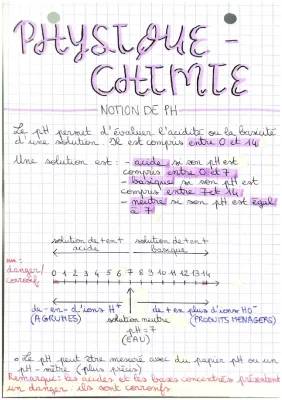 PHYSIQUE -
CHIMIE
NOTION DE PH
Le pH permet d'évaluer l'acidité ou la basicité
d'une solution. Il est compris entre 0 et 14
Une solution est : - acide si son pH est
compris entre 0 et 7
- basique si son pH est
compris entre 7 et 14
- neutre si son pH est égal
à 7
solution de + en + acide
solution de + en + basique
danger/
corrosifs
0 1 2 3 4 5 6 7 8 9 10 11 12 13 14
de - en - d'ions H⁺
(AGRUMES)
solution neutre
pH = 7
(EAU)
de + en plus d'ions HO⁻
(PRODUITS MENAGERS)
o Le pH peut être mesuré avec du papier pH ou un
pH-mètre (plus précis)
Remarque: les acides et les bases concentrés présentent
un danger : ils sont corrosifs